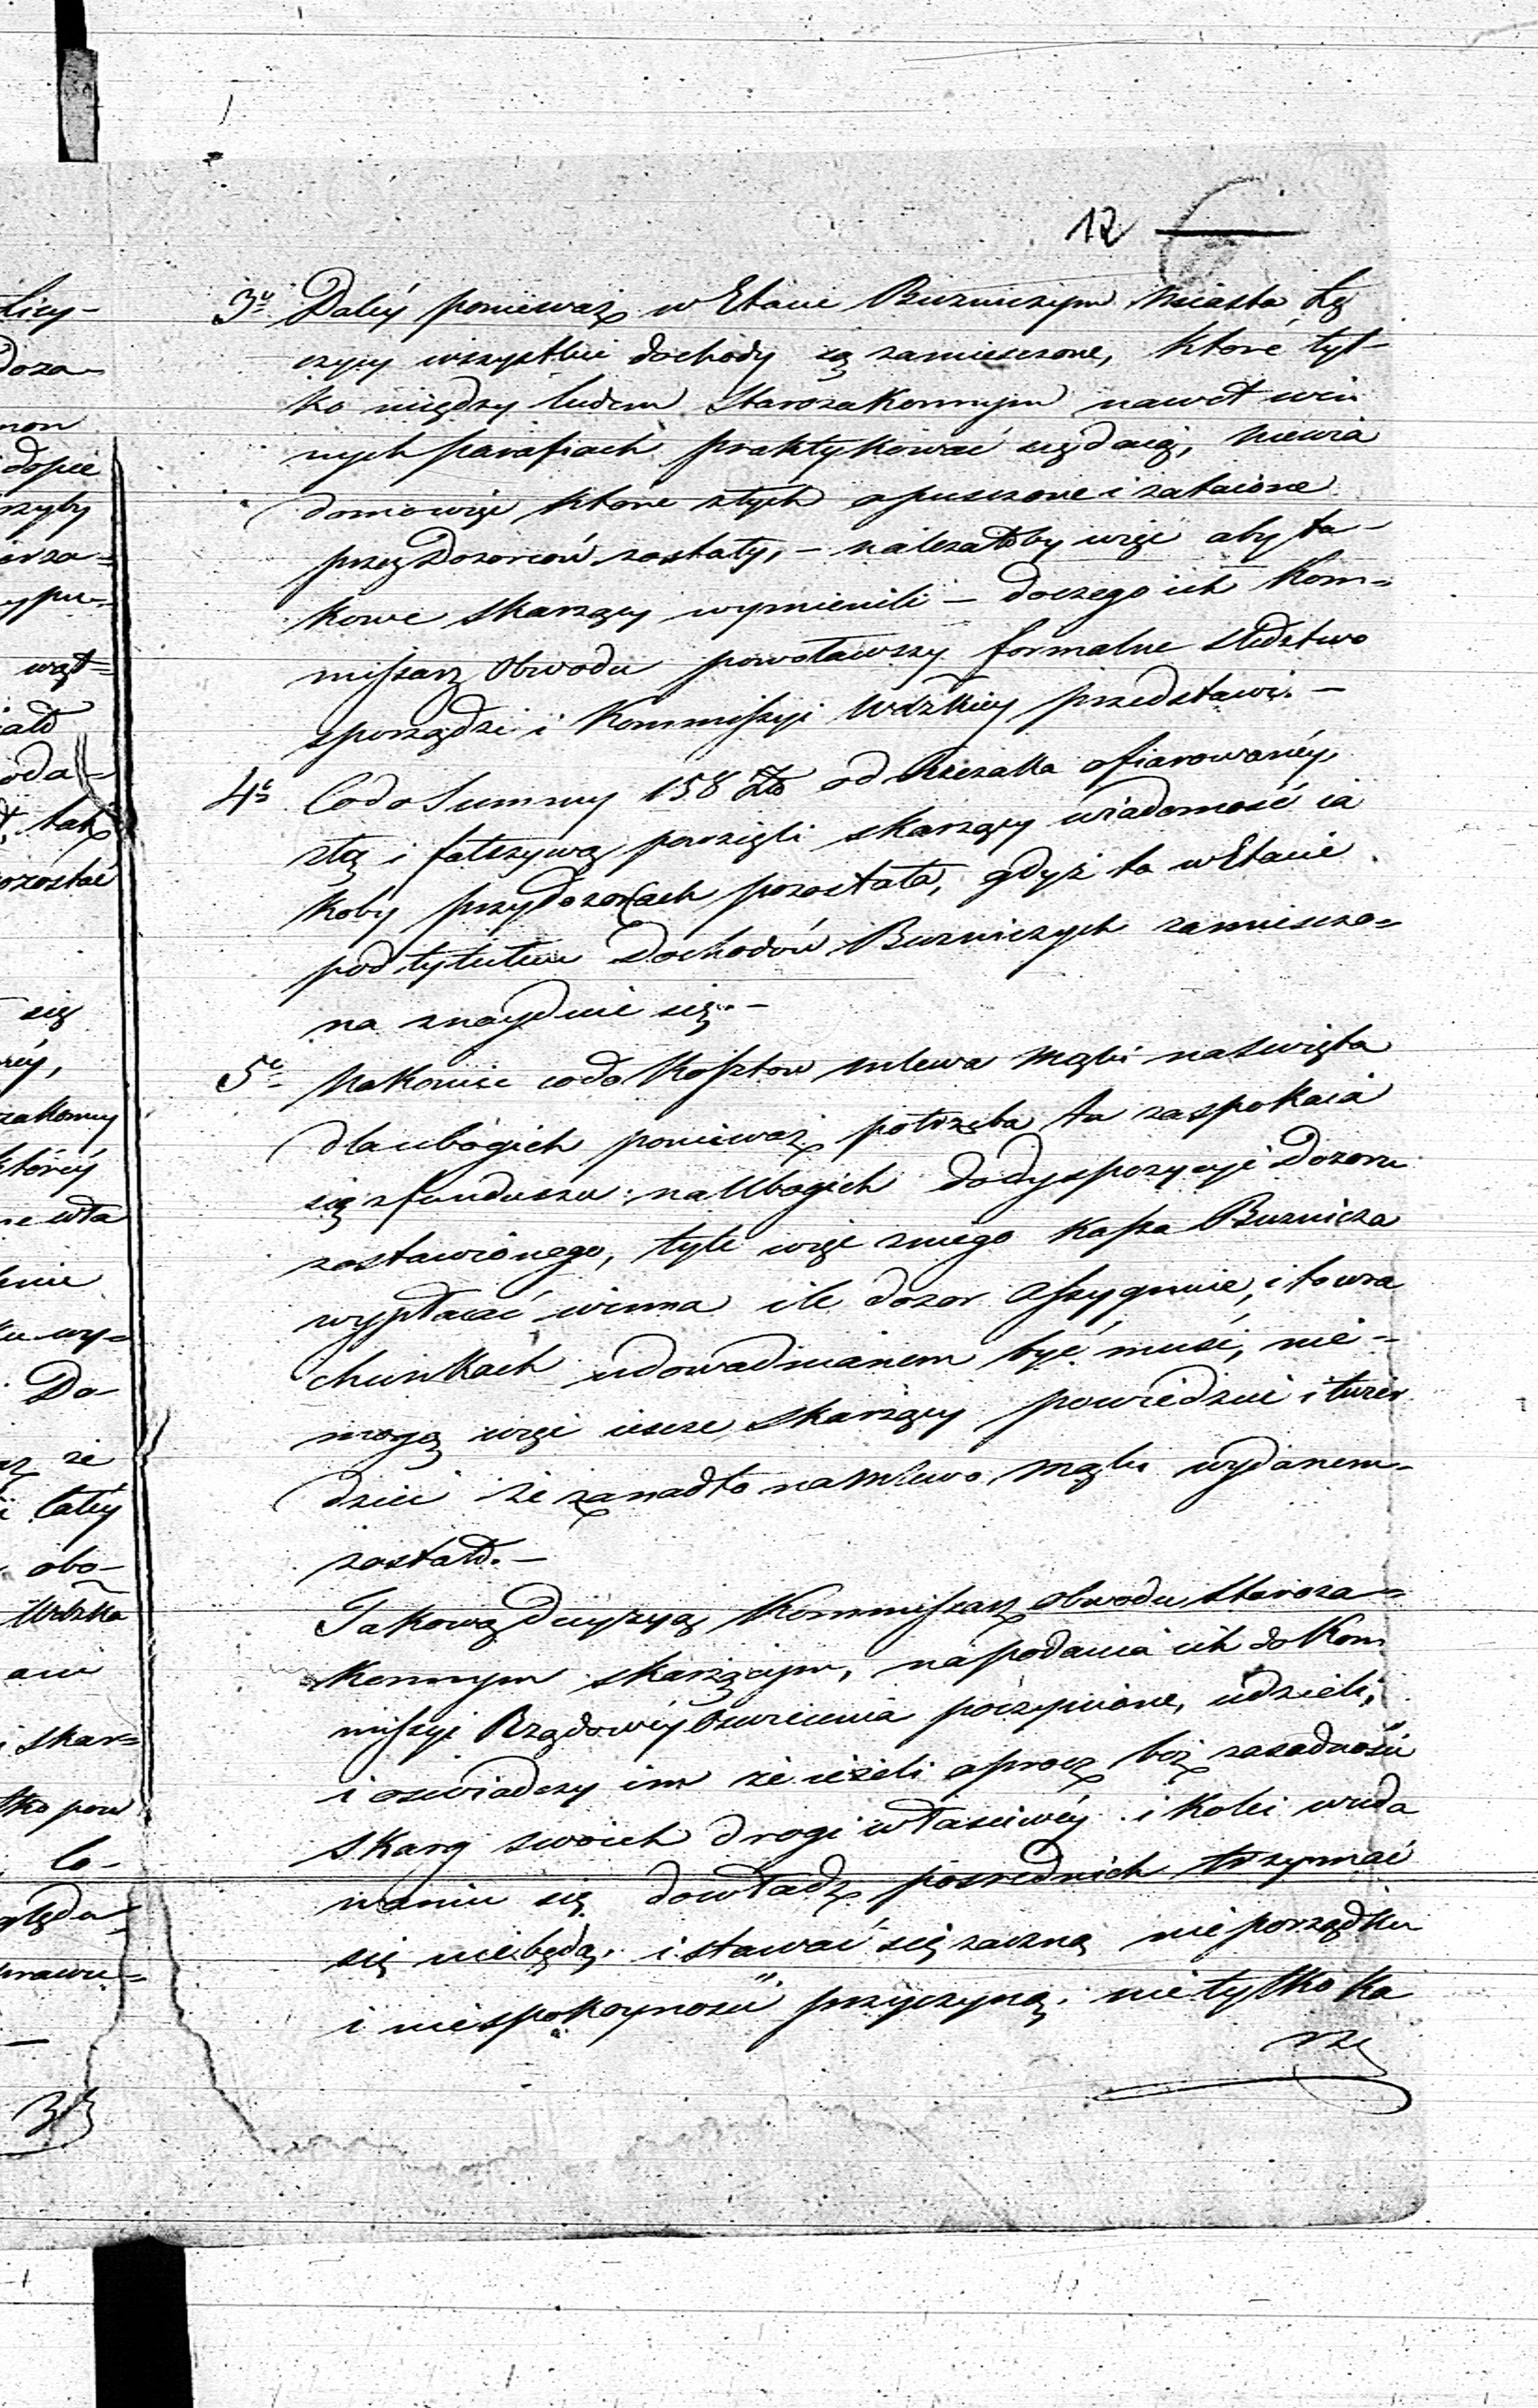 12
3o Daléy ponieważ w Etacie Buzniczym Miasta Łę
czycy wszystkie dochody są zamiesczone, które tyl-
ko między ludem Starozakonnym nawet win
nych parafiach praktykować się daią, niewia
domo więc które ztych opusczone i zataione
przez Dozorców zostały, – należałoby więc aby ta-
kowe skarżący wymienili – doczego ich Kom-
missarz Obwodu powoławszy formalne śledztwo
sporządzi i Kommissyi Wdzkiey przedstawi. –
4o Co do Summy 158 Zł od Rzezaka ofiarowanéy,
złą i fałszywą powzięli skarżący wiadomość ia
koby przy dozorcach pozostała, gdyż ta w Etacie
pod tytułem Dochodów Buzniczych zamiesczo-
na znayduie się. –
5o Nakoniec codo Kosztow mlewa mąki na święta
dla ubogich ponieważ potrzeba ta zaspokaia
się z funduszu na Ubogich do dyspozycyi Dozoru
zostawionego, tyle więc zniego Kassa Buznicza
wypłacać winna ile dozor assygnuie, i to wra
chunkach udowadnianem być musi, nie-
mogą więc iescze skarżący powiedzieć i twier
dzieć że zanadto na mlewo mąki wydanem
zostało. –
Takową decyzyą Kommissarz Obwodu Staroza-
konnym skarżącym, na podania ich do Kom
missyi Rządowéy Oświecenia poczynione, udzieli,
i oświadczy im że ieżeli oprócz bez zasadności
skarg swoich drogi właściwéy i kolei w uda
waniu się do władz pośrednich trzymać
się niebędą, i stawać się zaczną nieporządku
i niespokoyności przyczyną, nietylko ka
rze